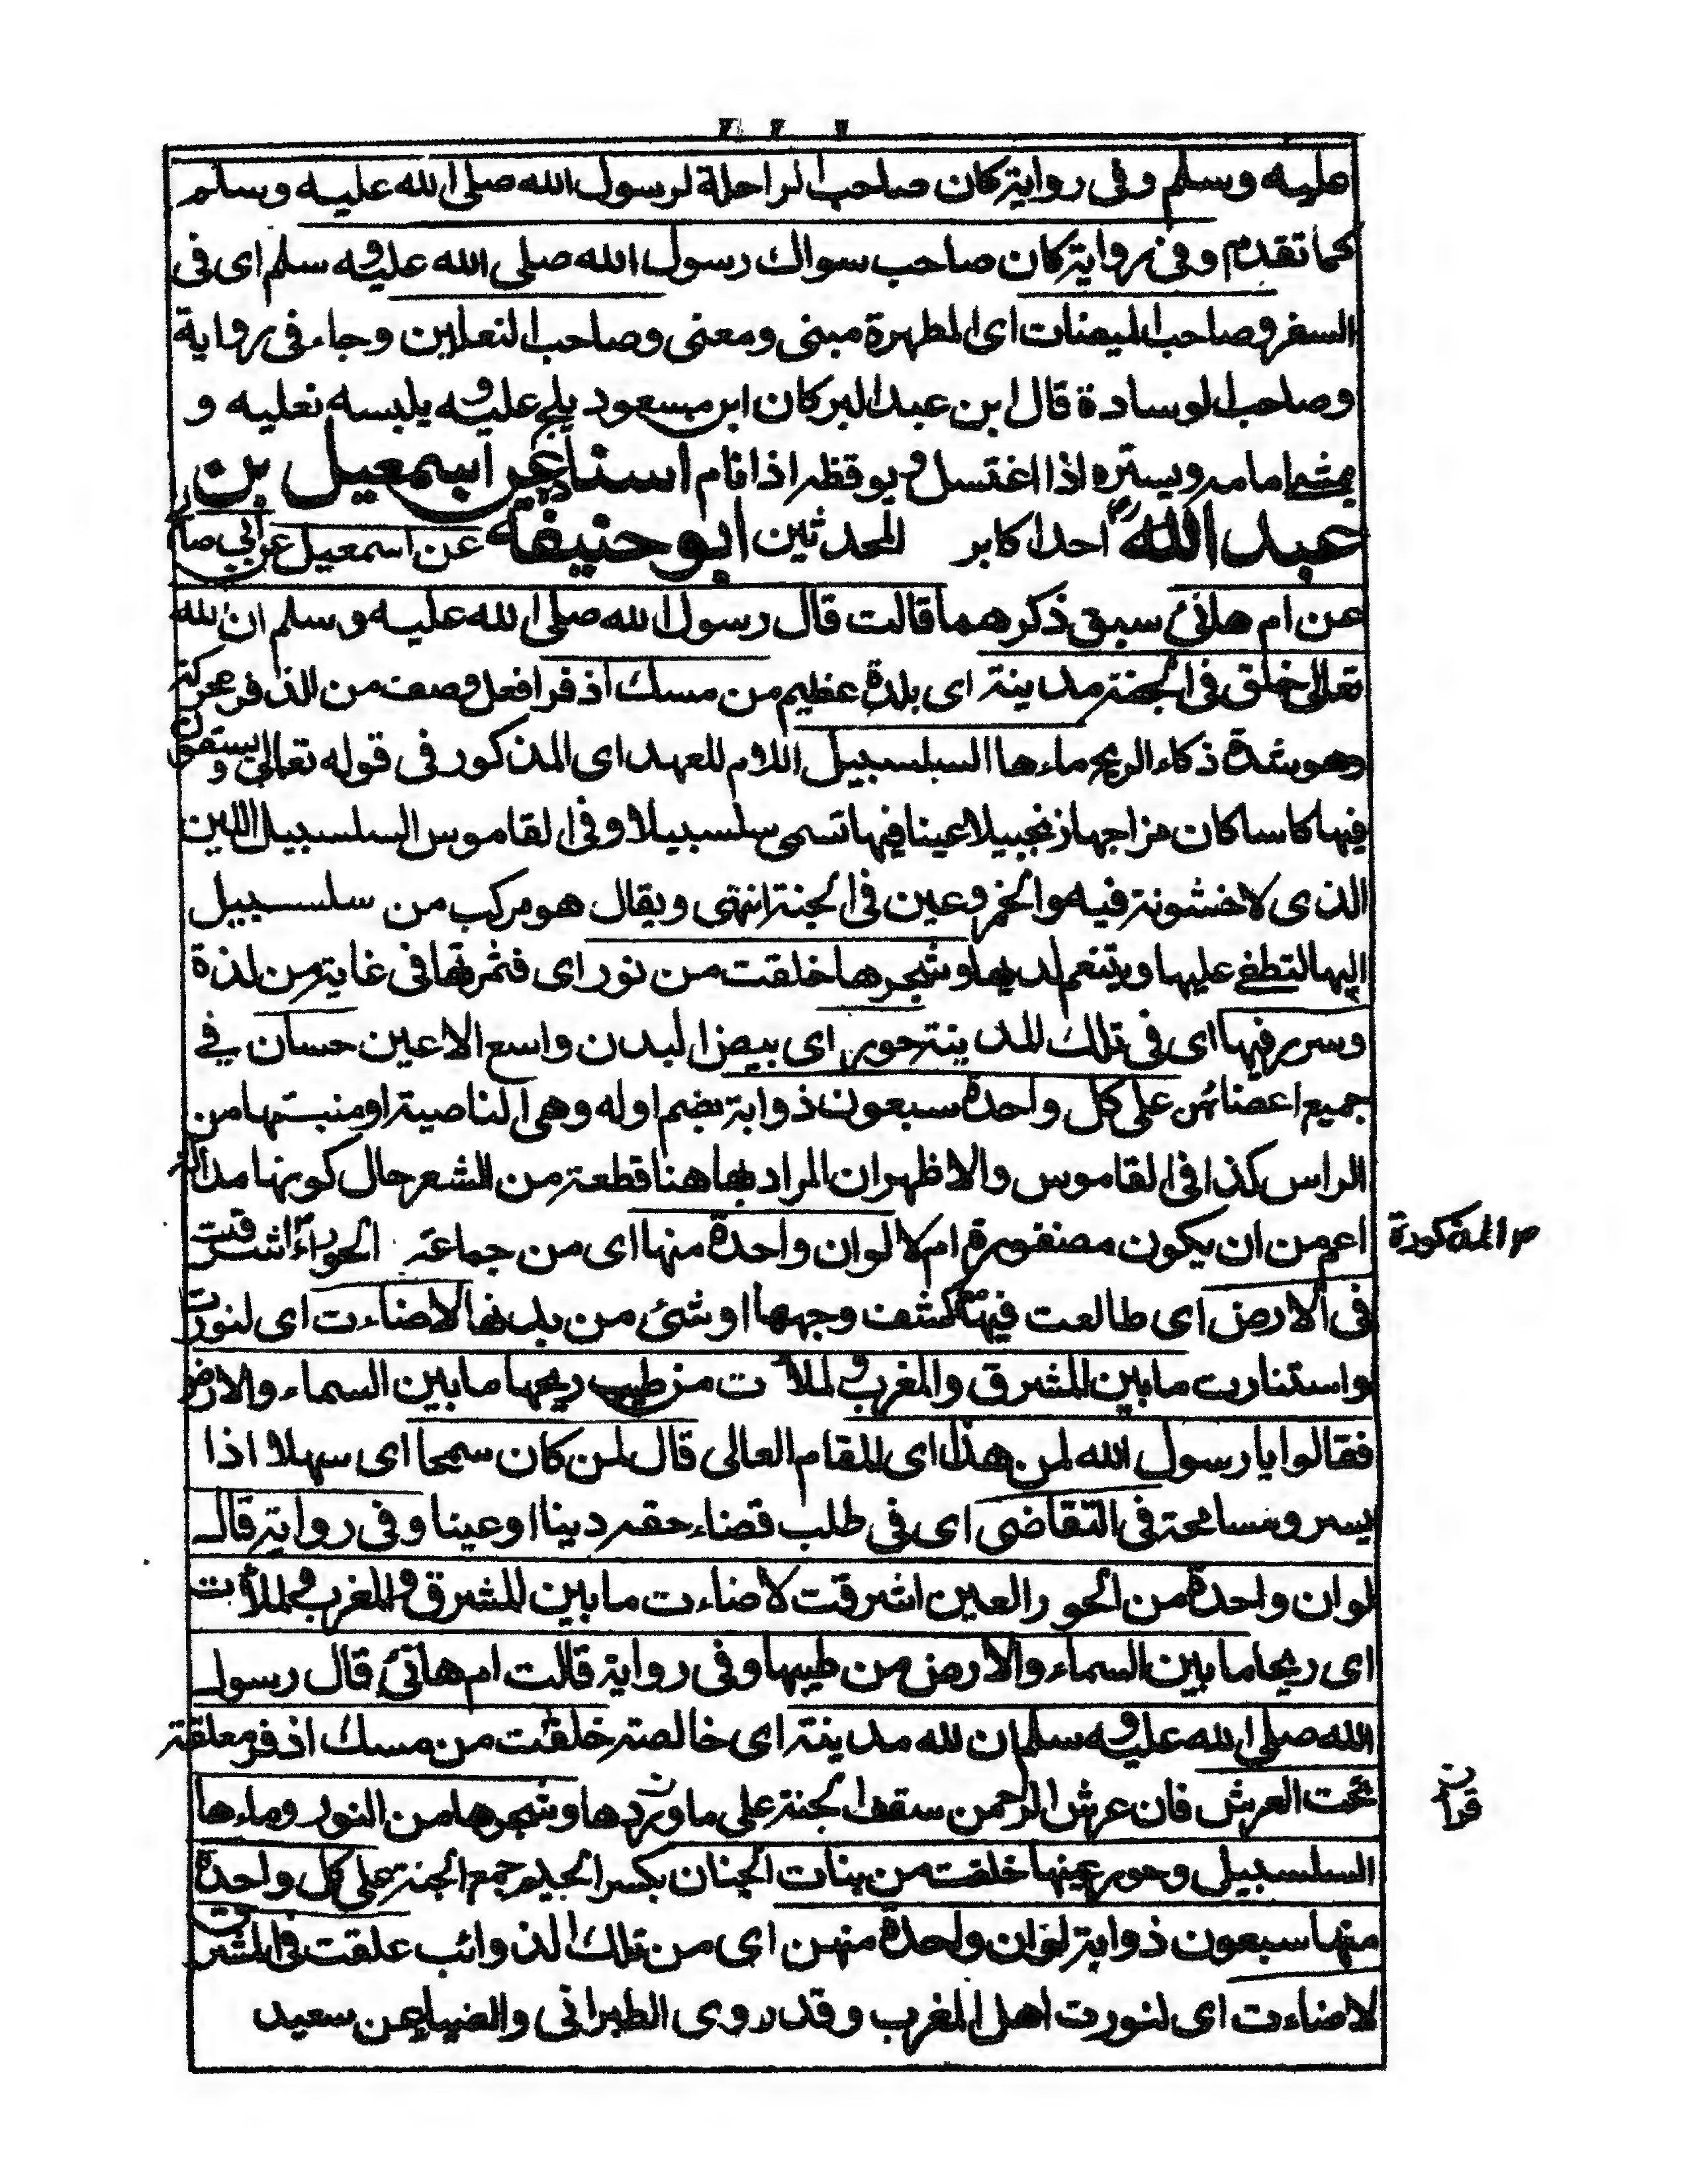 عليه وسلم وفى رواية كان صاحب الراحلة لرسول الله صلى الله عليه وسلم
كما تقدم وفى رواية كان صاحب سواك رسول الله صلى الله عليه وسلم اى فى
السفر وصاحب الميضات اى المطهرة مبنى ومعنى وصاحب النعلين وجاء فى رواية
وصاحب الوسادة قال ابن عبد البر كان ابن مسعود يلج عليه ويلبسه نعليه و
يمشى امامه ويستره اذا اغتسل ويوقظه اذا نام اسناده عن اسمعيل بن
عبد الله احد اكابر المحدثين ابو حنيفة عن اسمعيل عن ابي صالح
عن ام هانئ سبق ذكرهما قالت قال رسول الله صلى الله عليه وسلم ان لله
تعالى خلق فى الجنة مدينة اى بلدة عظيم من مسك اذفر افعل وصف من الذفر محركة
وهو شدة ذكاء الريح ماءها السلسبيل اللام للعهد اى المذكور فى قوله تعالى ويسقون
فيها كاسا كان مزاجها زنجبيلا عينا فيها تسمى سلسبيلا وفى القاموس السلسبيل اللين
الذى لا خشونة فيه والخمر وعين فى الجنة انتهى ويقال هو مركب من سلسبيل
اليها لتطفى عليها ويتنعم لديها وشجرها خلقت من نور اى فثمرتها فى غاية من لذة
وسرر فيها اى فى تلك المدينة حور اى بيض البدن واسع الاعين حسان في
جميع اعضائهن على كل واحدة سبعون ذوابة بضم اوله وهى الناصية او منبتها من
الراس كذا فى القاموس والاظهر ان المراد بها هنا قطعة من الشعر حال كونها
اعم من ان يكون مضفورة ام لا لو ان واحدة منها اى من جماعة الحوراء اشرقت
المذكورة
فى الارض اى طالعت فيها كشف وجهها او شئ من بدنها لاضاءت اى لنورت
واستنارت ما بين المشرق والمغرب ولملأت من طيب ريحها ما بين السماء والارض
فقالوا يا رسول الله لمن هذا اى المقام العالى قال لمن كان سمحا اى سهلا اذا
يسر ومسامحة فى التقاضى اى فى طلب قضاء حقه دينا او عينا وفى رواية قال
لو ان واحدة من الحور العين اشرقت لاضاءت ما بين المشرق والمغرب ولملأت
اى ريحا ما بين السماء والارض من طيبها وفى رواية قالت ام هانئ قال رسول
الله صلى الله عليه وسلم ان لله مدينة اى خالصة خلقت من مسك اذفر معلقة
تحت العرش فان عرش الرحمن سقف الجنة على ما ورد وشجرها من النور وماءها
السلسبيل وحور عينها خلقت من بنات الجنان بكسر الجيم جمع الجنة على كل واحدة
منها سبعون ذوابة لو ان واحدة منهن اى من تلك الذوائب علقت فى المشرق
لاضاءت اى لنورت اهل المغرب وقد روى الطبرانى والضياء عن سعيد